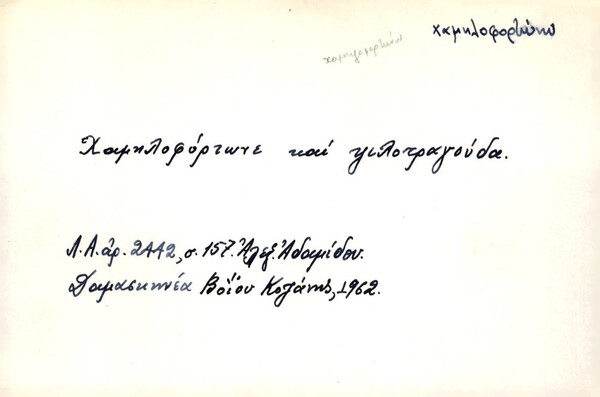 χαμηλοφορτώνω
χαμηλοφορτώνω
Χαμηλοφόρτωνε καί ψιλοτραγούδα.
Λ.Α.άρ. 2442, σ. 157. Ἀλεξ. Ἀδαμίδου.
Δαμασκηνέα Βοΐου Κοζάνης, 1962.